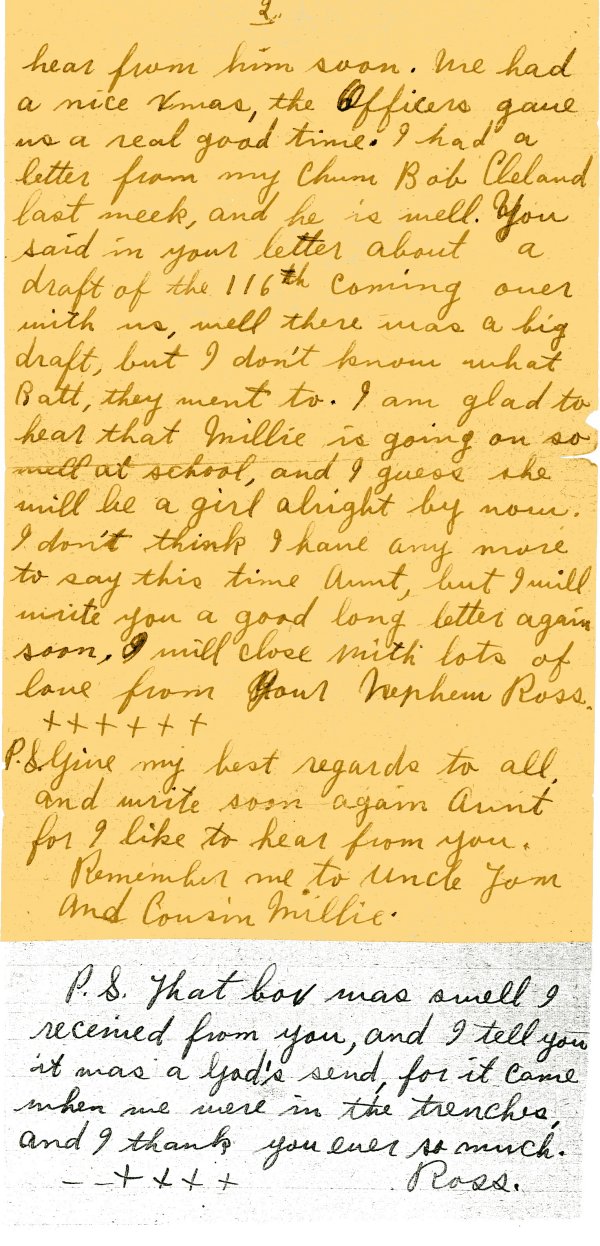 2.
hear from him soon. We had
a nice Xmas, the Officers gave
us a real good time. I had a
letter from my Chum Bob Cleland
last week, and he is well. You
said in your letter about a
draft of the 116th coming over
with us, well there was a big
draft, but I don't know what
Batt, they went to. I am glad to
hear that Millie is going on so
well at school, and I guess she
will be a girl alright by now.
I don't think I have any more
to say this time Aunt, but I will
write you a good long letter again
soon, I will close with lots of
love from Your Nephew Ross.
++++++
P.S. Give my best regards to all,
and write soon again Aunt
for I like to hear from you.
Remember me to Uncle Tom
and Cousin Millie.
P.S. That box was swell I
received from you, and I tell you
it was a God's send, for it came
when we were in the trenches,
and I thank you ever so much.
– – + + + + Ross.